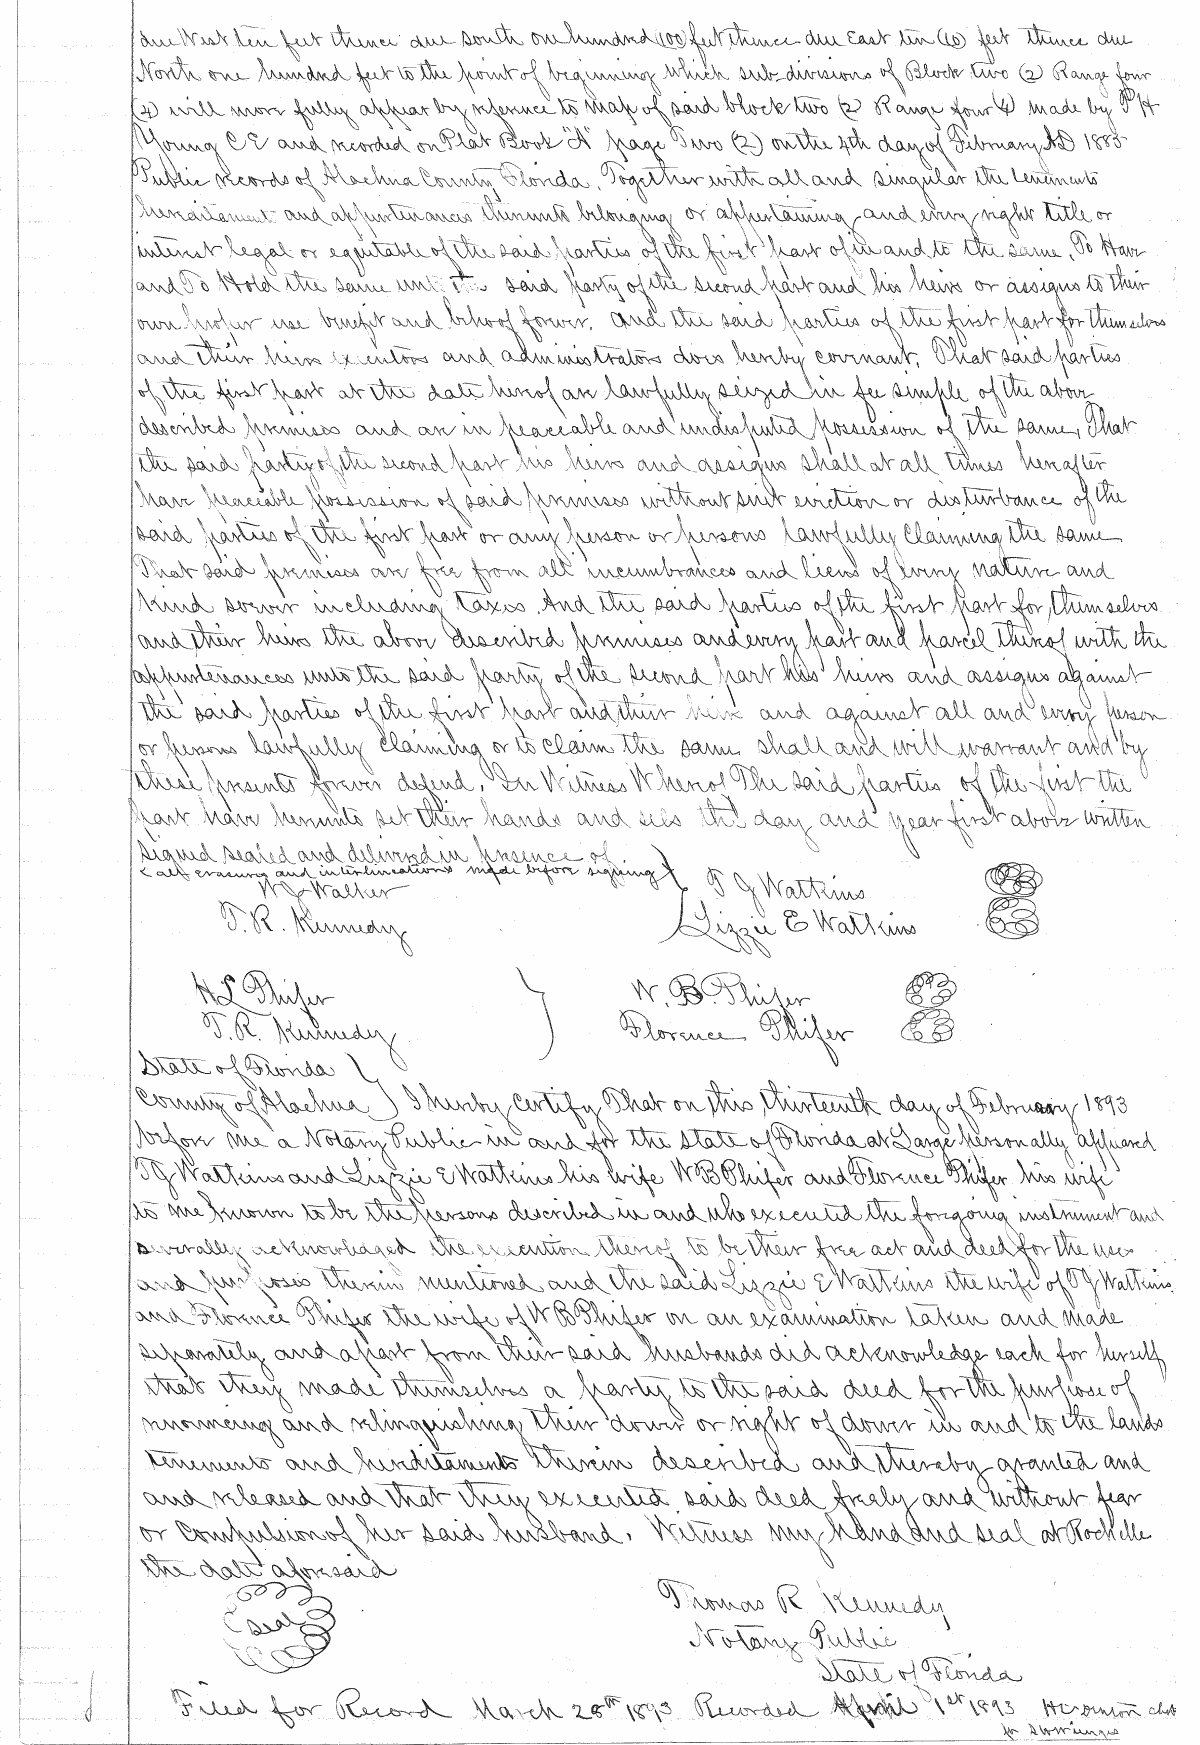 due West ten feet thence due south one hundred (100) feet thence due East ten (10) feet thence due
North one hundred feet to the point of beginning which sub-divisions of Block two (2) Range four
(4) will more fully appear by reference to map of said block two (2 Range four 4) made by P H
Young C E and recorded on Plat Book "A" page Two (2) on the 4th day of February AD 1885
Public records of Alachua County Florida. Together with all and singular the tenements
hereditament and appurtenances thereunto belonging or appertaining and every right title or
interest legal or equitable of the said parties of the first part of in and to the same, To Have
and To Hold the same unto the said party of the second part and his heirs or assigns to their
own proper use benefit and behoof forever. And the said parties of the first part for themselves
and their heirs executors and administrators does hereby covenant, That said parties
of the first part at the date hereof are lawfully seized in fee simple of the above
described premises and are in peaceable and undisputed possession of the same, That
the said party of the second part his heirs and assigns shall at all times hereafter
have peaceable possession of said premises without suit eviction or disturbance of the
said parties of the first part or any person or persons lawfully claiming the same
That said premises are free from all incumbrances and liens of every nature and
kind soever including taxes, And the said parties of the first part for themselves
and their heirs the above described premises and every part and parcel thereof with the
appurtenances unto the said party of the second part his heirs and assigns against
the said parties of the first part and their heirs and against all and every person
or persons lawfully claiming or to claim the same shall and will warrant and by
these presents forever defend. In Witness Whereof The said parties of the first the
part have hereunto set their hands and seals the day and year first above written
Signed sealed and delivered in presence of
all erasures and interlineations made before signing
W J Walker T G Watkins
T. R. Kennedy Lizzie E Watkins
H L Phifer W. B. Phifer
T. R. Kennedy Florence Phifer
State of Florida
County of Alachua I hereby certify That on this thirteenth day of February 1893
before me a Notary Public in and for the State of Florida at Large personally appeared
T G Watkins and Lizzie E Watkins his wife W B Phifer and Florence Phifer his wife
to me known to be the persons described in and who executed the foregoing instrument and
severally acknowledged the execution thereof to be their free act and deed for the uses
and purposes therein mentioned and the said Lizzie E Watkins the wife of T G Watkins
and Florence Phifer the wife of W B Phifer on an examination taken and made
separately and apart from their said husbands did acknowledge each for herself
that they made themselves a party to the said deed for the purpose of
renouncing and relinquishing their dower or right of dower in and to the lands
tenements and hereditaments therein described and thereby granted and
and released and that they executed said deed freely and without fear
or compulsion of her said husband. Witness my hand and seal at Rochelle
the date aforesaid
Seal
Thomas R Kennedy
Notary Public
State of Florida
Filed for Record March 28th 1893 Recorded April 1st 1893